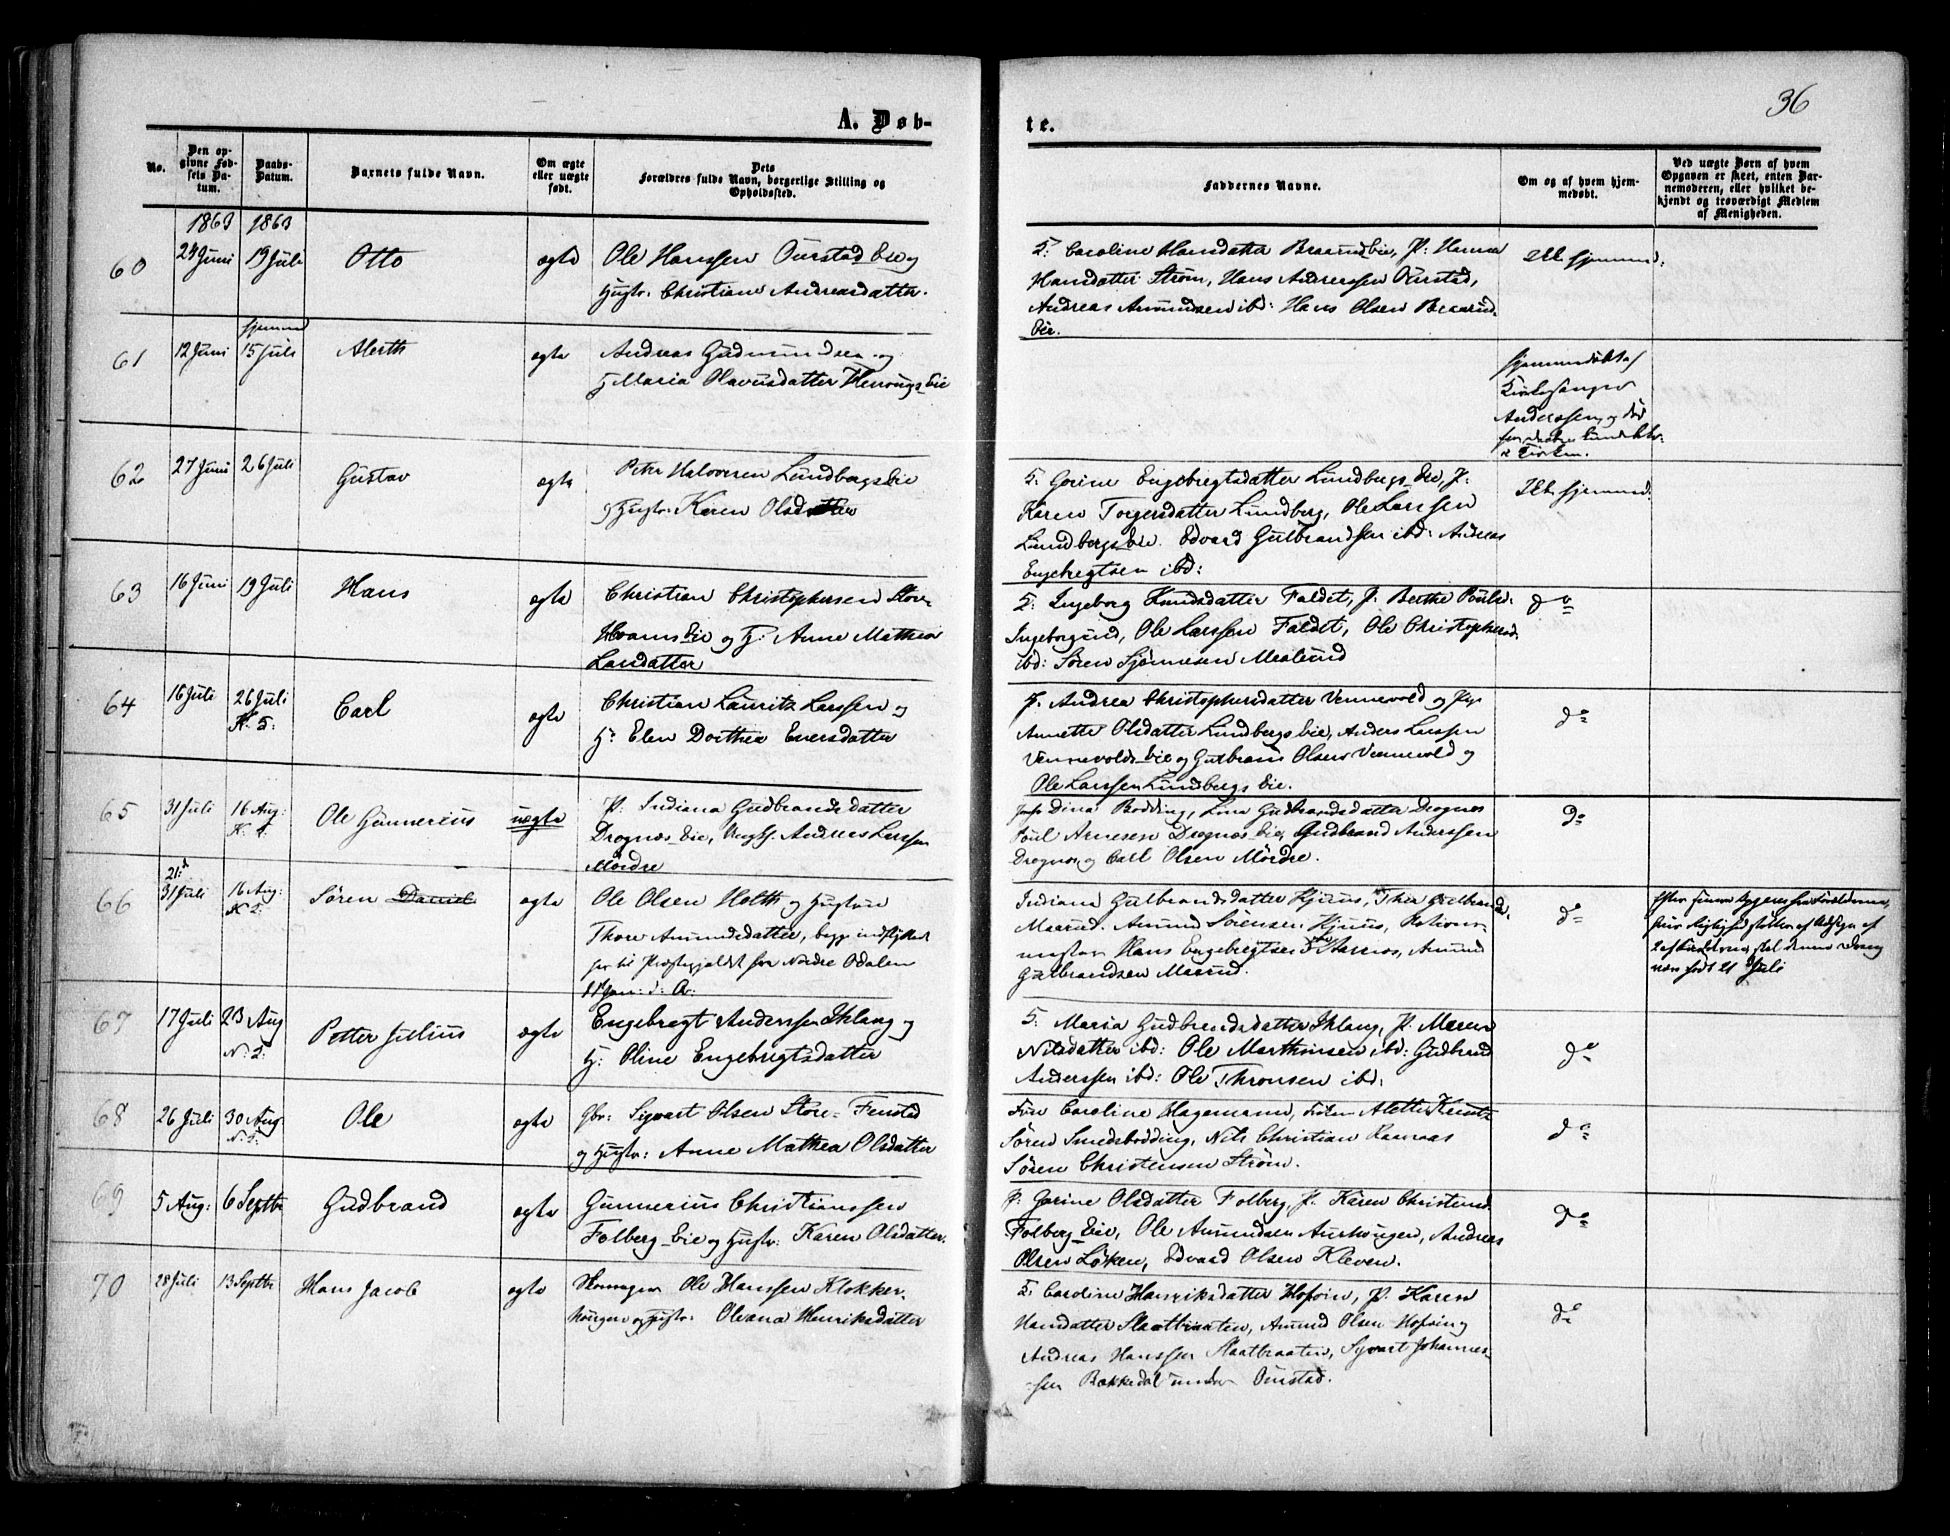 36
A. Døb-
te.
No.
Den op-
givne Fød-
sels Da-
tum.
Daabs-
Datum.
Barnets fulde Navn.
Om ægte
eller uægte
født.
Dets
Forældres fulde Navn, borgerlige Stilling og
Opholdssted.
Faddernes Navne.
Om og af hvem hjem-
medøbt.
Ved uægte Børn af hvem
Opgaven er skeet, enten Bar-
nemoderen, eller hvilket be-
kjendt og troværdigt Medlem
af Menigheden.
1863 1863
60 24 Juni 19 Juli Otto ægte Ole Hanssen Ourstad Eie og
Hustr: Christiane Andreasdatter.
Caroline Hansdatter Braarud Eie, P: Hanna
Hansdatter Strøm, Hans Anderssen Ourstad,
Andreas Amundsen ibd: Hans Olsen Braarud
Eie.
Ikke hjemmed:
61 12 Juni hjemmed
15 Juli ægte Andreas Gudmundsen og
H Maria Olavusdatter Eie
hjemmedøbt af
Kirkesanger
Anderssen, og død
62 27 Juni 26 Juli Gustav ægte Peter Halvorsen Lundbergs Eie
og Hustr: Karen Olsdatter
Gorine Engebregtsdatter Lundbergs Eie, P:
Karen Torgersdatter Lundberg, Ole Larssen
Lundbergs Eie. Edvard Gulbrandsen ibd: Andreas
Engebregtsen ibd:
Ikke hjemmed:
63 16 Juni 19 Juli Hans ægte Christian Christophersen Store
Hvams Eie og H: Anne Mathea
Larsdatter
Ingeborg Knudsdatter Faldet, P: Berthe Pouls:
Ingeborgrud, Ole Larssen Faldet, Ole Christophersen
ibd: Søren Sjønnesen Mealund
do
64 16 Juli 26 Juli
Carl ægte Christian Lauritz Larssen og
H: Elen Dorthea Enersdatter
P. Andrea Christophersdatter Vennevold og Pige
Annette Olsdatter Lundbergs Eie, Anders Larssen
Vennevolds Eie og Gulbrand Olsen Vennevold og
Ole Larssen Lundbergs Eie.
do
65 31 Juli 16 Aug:
Ole Gunnerius uægte P. Indiana Gudbrandsdatter
Drognæs Eie, Ungk. Andreas Larssen
Mørdre
Dina Bodding, Lina Gudbrandsdatter Drognæs
Poul Arnesen Drognæs Eie, Gudbrand Anderssen
Drognæs, og Carl Olsen Mørdre.
do
66 21
31 Juli 16 Aug:
Søren Daniel ægte Ole Olsen Holth og Hustrue
Thore Amundsdatter, begge indflyttede
her til Præstegjeldet fra Nordre Odalen
11 Jan: d: A:
Indiana Gulbrandsdatter Hjuus, Thea Gulbrand
Maarud. Amund Sørensen Hjuus,
Hans Engebregtsen Aarnæs, Amund
Gulbrandsen Maarud.
do
født 21 Juli
67 17 Juli 23 Aug
N: K: Petter Julius ægte Engebregt Anderssen Ihlang og
H: Oline Engebregtsdatter
Maria Gudbrandsdatter Ihlang, P. Maren
Nilsdatter ibd: Ole Marthinsen ibd: Gudbrand
Anderssen ibd: Ole Thronsen ibd:
do
68 26 Juli 30 Aug
N: K: Ole ægte Gbr: Sigvart Olsen Store-Fenstad
og Hustr: Anne Mathea Olsdatter
Caroline Hagemann, Frøken Alette
Søren Smedsbodding, Nils Christian
Søren Christensen Strøm.
do
69 5 Aug: 6 Septbr Gudbrand ægte Gunnerius Christianssen
Folberg Eie og Hustr: Karen Olsdatter.
P: Gorine Olsdatter Folberg, P. Karen Christensd.
Folberg Eie, Ole Amundsen Aurhougen, Andreas
Olsen Løken, Edvard Olsen Kleven.
do
70 28 Juli 13 Septbr Hans Jacob ægte Ole Hanssen Klokker-
hougen og Hustr: Oleana Henriksdatter
Caroline Henriksdatter Hofvin, P. Karen
Hansdatter Slaatbraaten, Amund Olsen Hofvin og
Andreas Hanssen Slaatbraaten, Syvart Johannes-
sen Bækkedal under Ourstad.
do